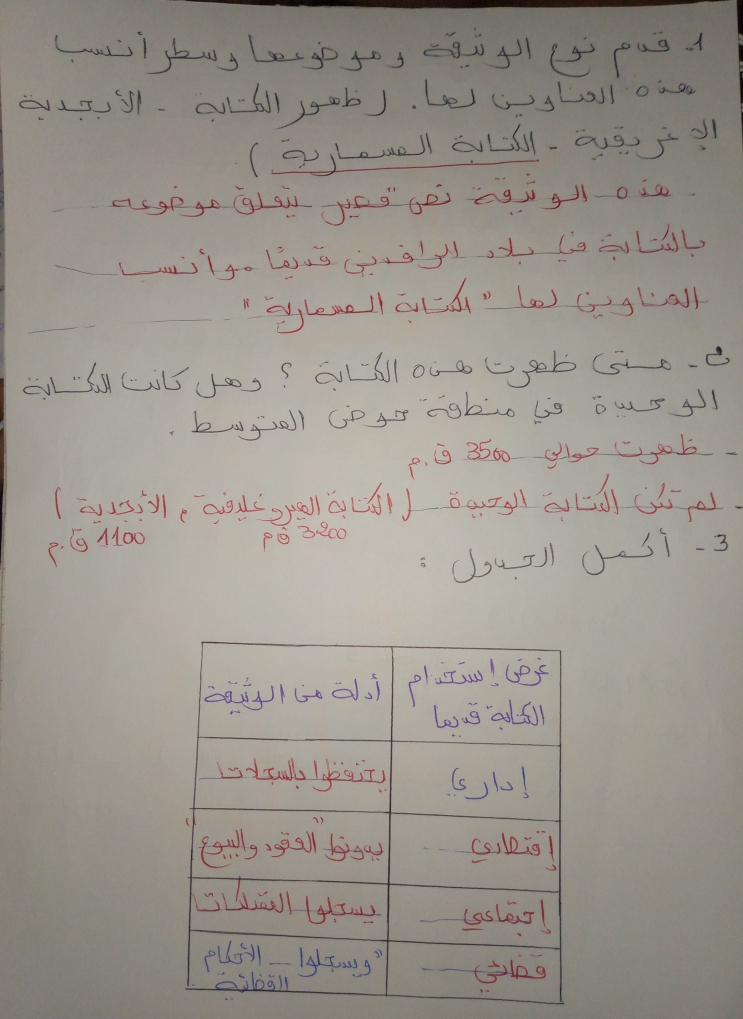 1- قدم نوع الوثيقة وموضوعها وسطر أنسب
هذه العناوين لها. (ظهور الكتابة - الأبجدية
الإغريقية - الكتابة المسمارية)
هذه الوثيقة نص قصير يتعلق موضوعه
بالكتابة في بلاد الرافدين قديمًا وأنسب
العناوين لها "الكتابة المسمارية"
2- متى ظهرت هذه الكتابة ؟ وهل كانت الكتابة
الوحيدة في منطقة حوض المتوسط .
- ظهرت حوالي 3500 ق.م
- لم تكن الكتابة الوحيدة (الكتابة الهيروغليفية , الأبجدية)
3200 ق م 1100 ق.م
3- أكمل الجدول :
غرض إستخدام الكتابة قديما | أدلة من الوثيقة
إداري | يحتفظوا بالسجلات
إقتصادي | يدونوا "العقود والبيوع"
إجتماعي | يسجلوا الممتلكات
قضائي | "ويسجلوا - الأحكام
القضائية